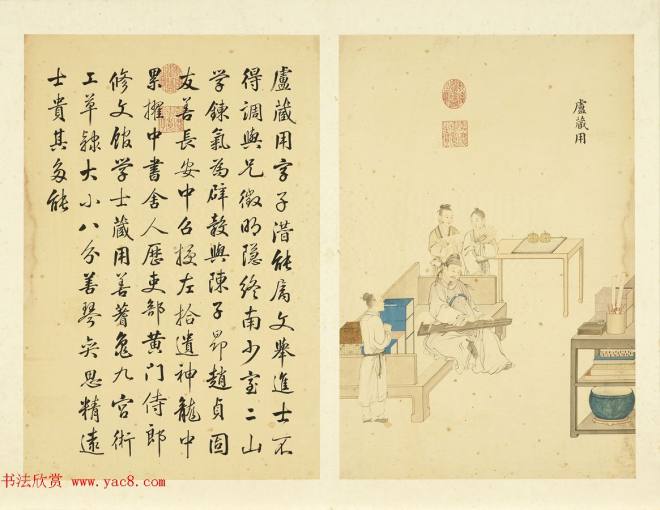 盧藏用
盧藏用字子潛能屬文舉進士不
得調與兄徵明隱終南少室二山
學鍊氣為辟穀與陳子昂趙貞固
友善長安中召授左拾遺神龍中
累擢中書舍人歷吏部黃門侍郎
修文館學士藏用善蓍龜九宮術
工草隸大小八分善琴奕思精遠
士貴其多能
书法欣赏 www.yac8.com